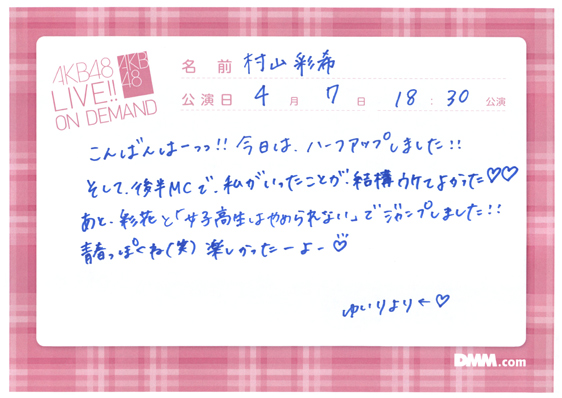 AKB48
LIVE!!
ON DEMAND
AKB
48
名前 村山彩希
公演日 4月7日 18:30公演
こんばんはーっっ!! 今日は、ハーフアップしました!!
そして、後半MCで、私がいったことが、結構ウケてよかった♡♡
あと、彩花と「女子高生はやめられない」でジャンプしました!!
青春っぽくね(笑) 楽しかったーよー♡
ゆいりより←♡
DMM.com